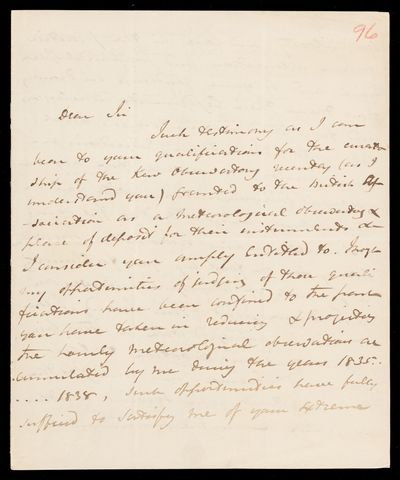 96
Dear Sir
Such testimony as I can
bear to your qualifications for the curator
ship of the Kew Observatory (as I
understand you) granted to the British As-
-sociation as a meteorological observatory &
place of deposit for their instruments &c
I consider you amply entitled to. My
opportunities of judging of those quali
fications have been confined to the part
you have taken in reducing & projecting
the hourly meteorological observations ac
cumulated by me during the years 1835..
.... 1838, such opportunities have fully
sufficed to satisfy me of your extreme